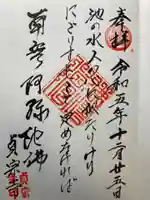 奉拝 令和五年十二月廿三日
池の水人の心に似たりけり
にごりすむこと定めなければ
南無阿弥陀佛
貞宗寺